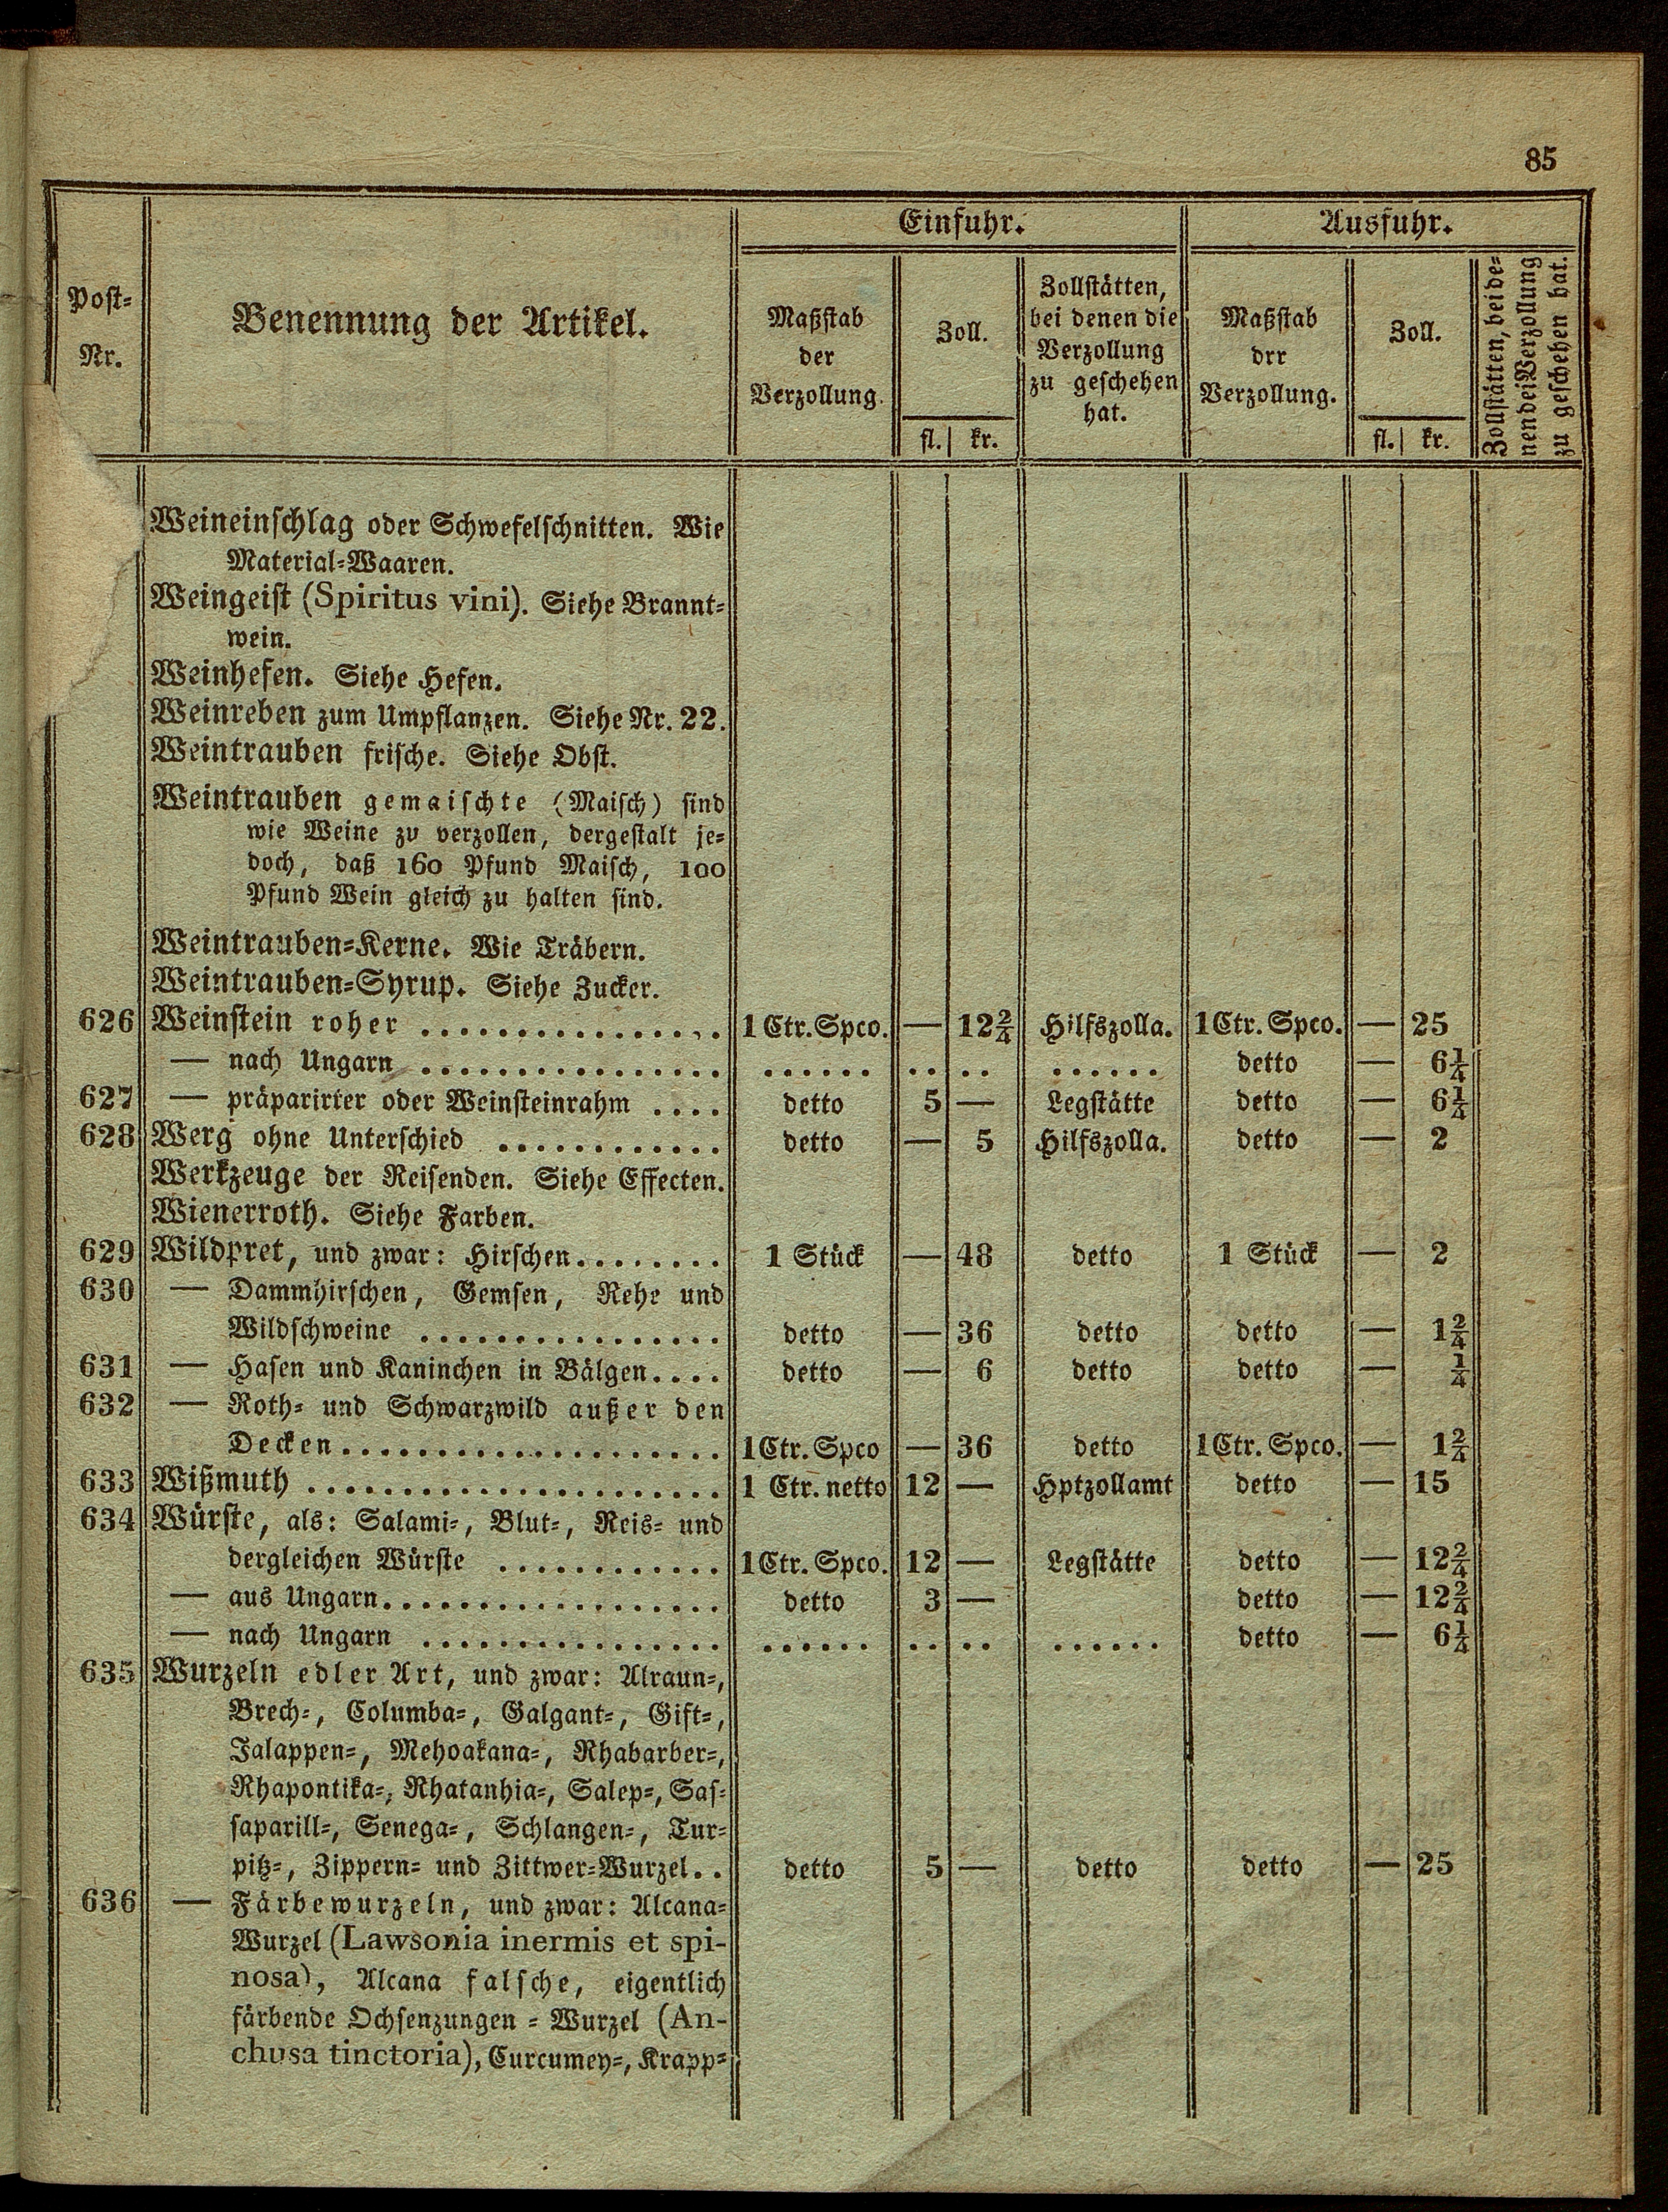 85
Einfuhr. Ausfuhr.
Post-
Nr.
Benennung der Artikel.
Maßstab
der
Verzollung.
Zoll.
fl. kr.
Zollstätten,
bei denen die
Verzollung
zu geschehen
hat.
Maßstab
drr
Verzollung.
Zoll.
fl. kr.
Zollstätten, bei de-
nen dei Verzollung
zu geschehen hat.
Weineinschlag oder Schwefelschnitten. Wie
Material-Waaren.
Weingeist (Spiritus vini). Siehe Brannt-
wein.
Weinhefen. Siehe Hefen.
Weinreben zum Umpflanzen. Siehe Nr. 22.
Weintrauben frische. Siehe Obst.
Weintrauben gemaischte (Maisch) sind
wie Weine zu verzollen, dergestalt je-
doch, daß 160 Pfund Maisch, 100
Pfund Wein gleich zu halten sind.
Weintrauben-Kerne. Wie Träbern.
Weintrauben-Syrup. Siehe Zucker.
626 Weinstein roher ................ 1 Ctr. Spco. — 12 2/4 Hilfszolla. 1 Ctr. Spco. — 25
— nach Ungarn ................ ...... .. .. ...... detto — 6 1/4
627 — präparirter oder Weinsteinrahm .... detto 5 — Legstätte detto — 6 1/4
628 Werg ohne Unterschied ............ detto — 5 Hilfszolla. detto — 2
Werkzeuge der Reisenden. Siehe Effecten.
Wienerroth. Siehe Farben.
629 Wildpret, und zwar: Hirschen........ 1 Stück — 48 detto 1 Stück — 2
630 — Dammhirschen, Gemsen, Rehe und
Wildschweine ................ detto — 36 detto detto — 1 2/4
631 — Hasen und Kaninchen in Bälgen.... detto — 6 detto detto — 1/4
632 — Roth- und Schwarzwild außer den
Decken.................... 1 Ctr. Spco — 36 detto 1 Ctr. Spco. — 1 2/4
633 Wißmuth ...................... 1 Ctr. netto 12 — Hptzollamt detto — 15
634 Würste, als: Salami-, Blut-, Reis- und
dergleichen Würste ............ 1 Ctr. Spco. 12 — Legstätte detto — 12 2/4
— aus Ungarn.................. detto 3 — detto — 12 2/4
— nach Ungarn ................ ...... .. .. ...... detto — 6 1/4
635 Wurzeln edler Art, und zwar: Alraun-,
Brech-, Columba-, Galgant-, Gift-,
Jalappen-, Mehoakana-, Rhabarber-,
Rhapontika-, Rhatanhia-, Salep-, Sas-
saparill-, Senega-, Schlangen-, Tur-
pitz-, Zippern- und Zittwer-Wurzel.. detto 5 — detto detto — 25
636 — Färbewurzeln, und zwar: Alcana-
Wurzel (Lawsonia inermis et spi-
nosa), Alcana falsche, eigentlich
färbende Ochsenzungen-Wurzel (An-
chusa tinctoria), Curcumey-, Krapp-